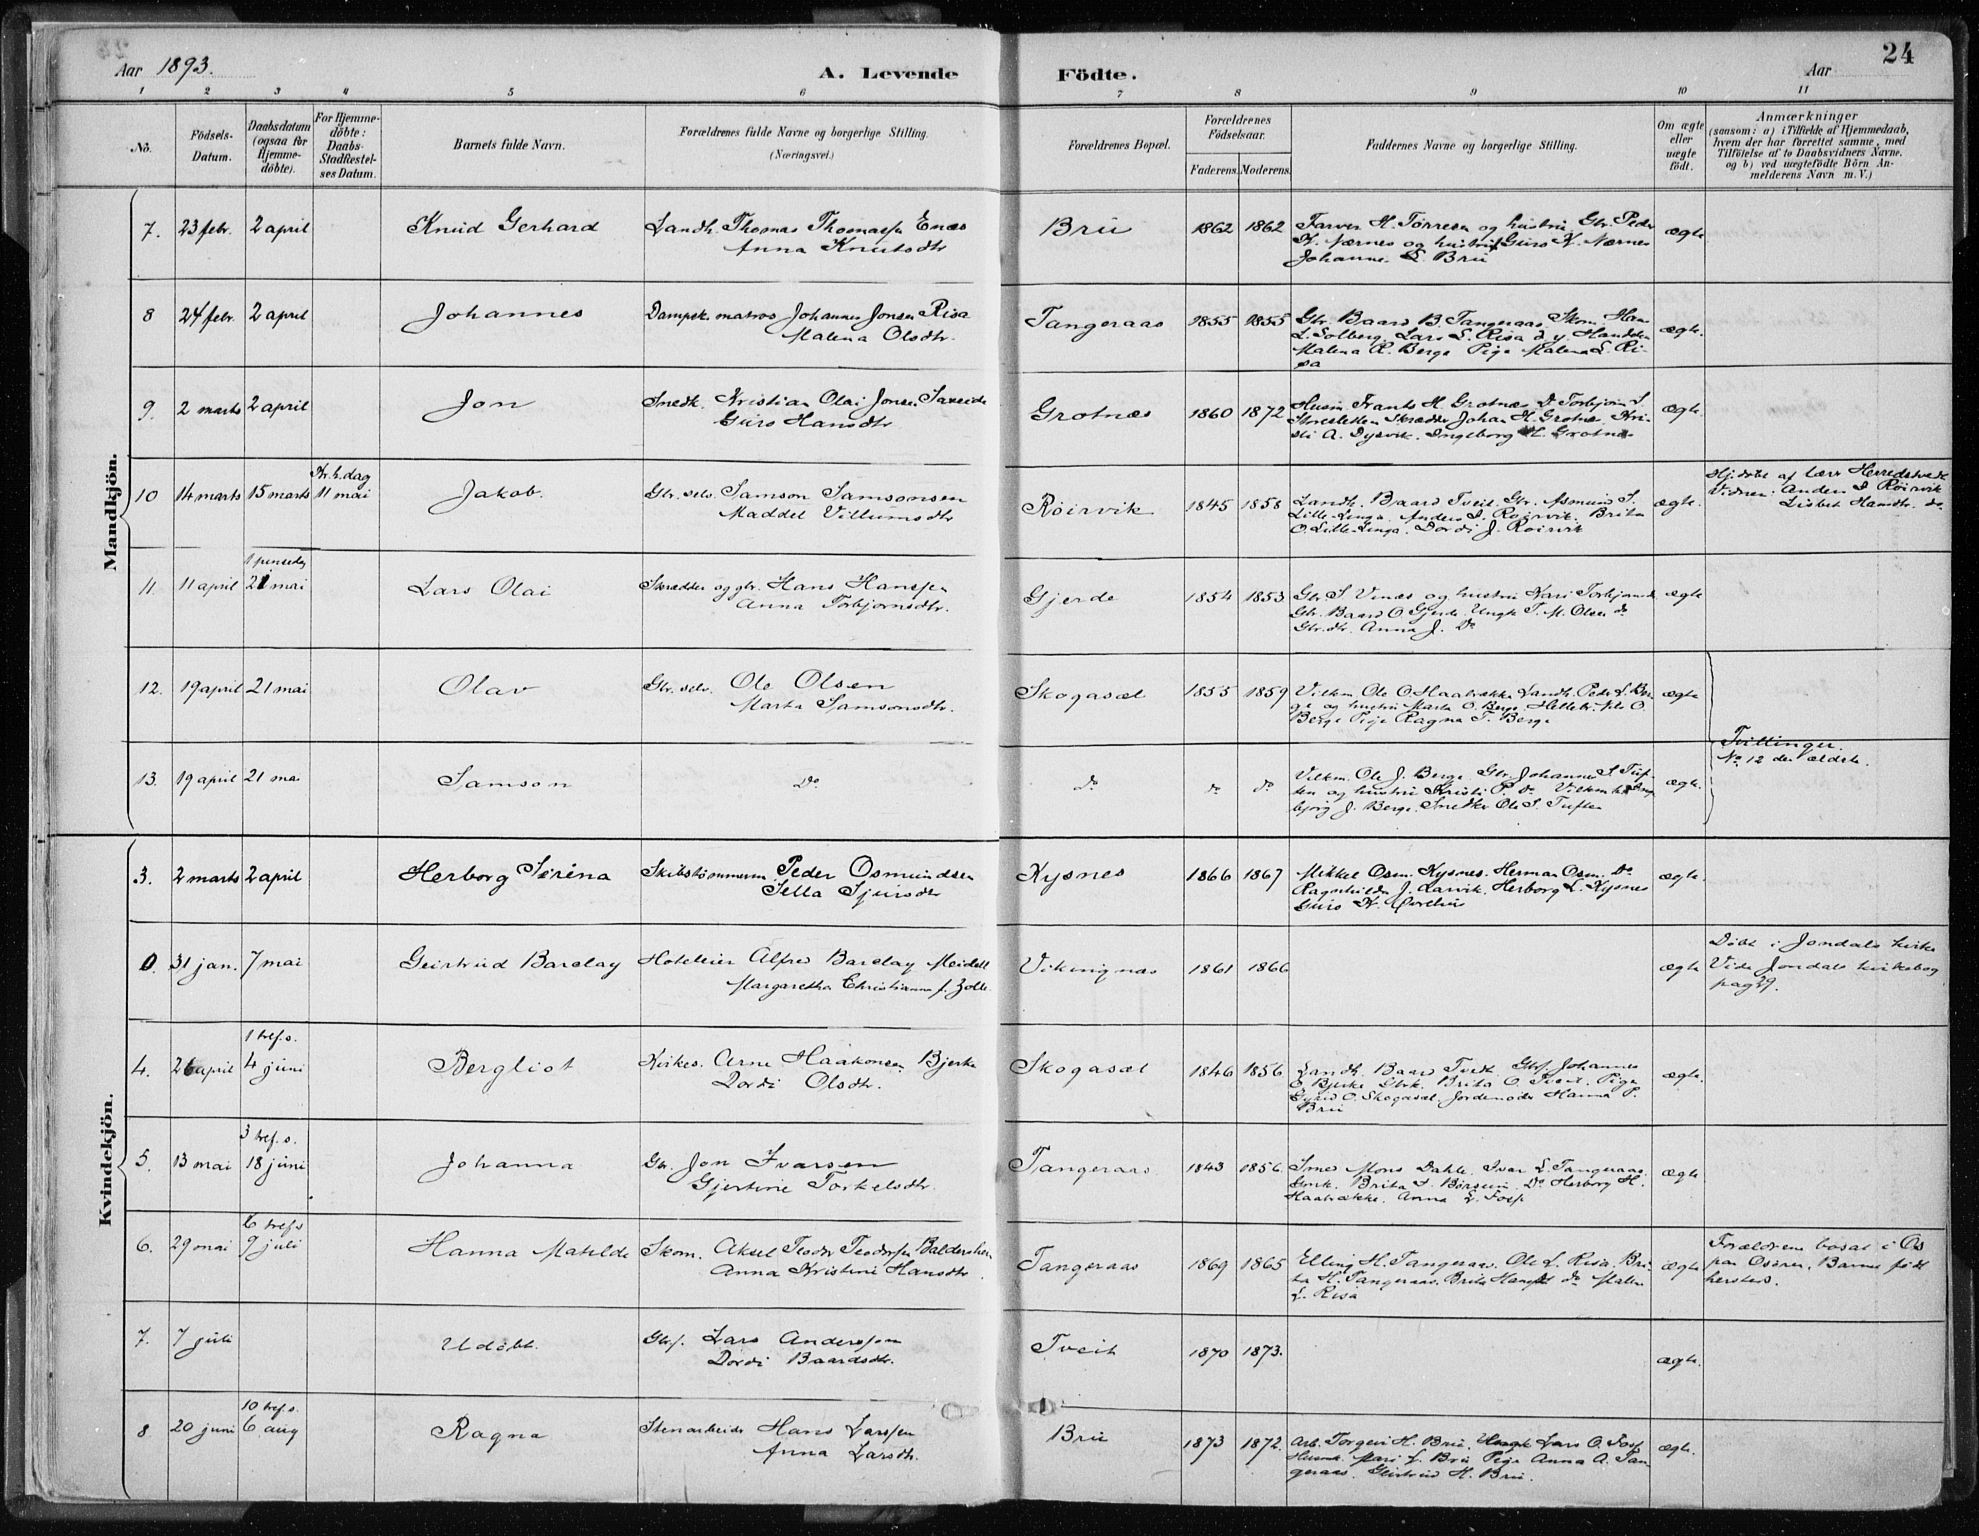 24
Aar 1893.
A. Levende Födte.
Aar
1 2 3 4 5 6 7 8 9 10 11
No.
Födsels-Datum.
Daabsdatum (ogsaa for Hjemmedöbte).
For Hjemmedöbte: Daabs-Stadfæstelses Datum.
Barnets fulde Navn.
Forældrenes fulde Navne og borgerlige Stilling.
(Næringsvei.)
Forældrenes Bopæl.
Forældrenes Födselsaar.
Faderens. Moderens.
Faddernes Navne og borgerlige Stilling.
Om ægte eller uægte födt.
Anmærkninger
(saasom: a) i Tilfælde af Hjemmedaab, hvem der har forrettet samme, med Tilföielse af to Daabsvidners Navne. og b) ved uægtefödte Börn Anmelderens Navn m. V.)
Mandkjön.
7. 23 febr. 2 april Knud Gerhard Landh. Thomas Thomassen Enæs
Anna Knutsdtr
Brü 1862 1862 Farver H. Tørresen og hustru, Gbr. Peder
K. Nærnes og hustru Guro K. Nærnes
Johanne L. Brü
ægte
8 24 febr. 2 april Johannes Dampsk. matros Johannes Jonsen Risa
Malena Olsdtr.
Tangeraas 1855 1855 Gbr. Baard B. Tangeraas, Skom. Hans
L. Solberg, Lars L. Risa
Malena R. Berge Pige Malena L. Ri-
sa
ægte.
9. 2 marts 2 april Jon Snedk. Kristian Olai Jonsen
Guro Hansdtr
Grotnæs 1860 1872 Husm. Frants H. Grotnæs
Skrædder Johan H. Grotnæs, Kri-
sti A. Dysvik. Ingeborg H. Grotnæs
ægte.
10 14 marts 15 marts Kr. h. dag
11 mai Jakob. Gbr. selv. Samson Samsonsen
Maddel Villumsdtr
Röirvik 1845 1858 Landh. Baard Tveit, Gbr. Asmund S.
Lille-Linga, Anders S. Röirvik. Brita
O. Lille-Linga. Dordi J. Röirvik
ægte.
Hj. döbt af lærer Herredstveit
Vidner: Anders S. Röirvik
Lisbet Hansdtr. do
11. 11 april 1 pinsedag
21 mai Lars Olai Skrædder og gbr. Hans Hansen
Anna Torbjornsdtr.
Gjerde 1854 1853 Gbr. S. Vinæs og hustru Kari Torbjornsd
Gbr. Baard O. Gjerde Ungk. T. M. Olsen do
Gbr.dtr. Anna J. Do
ægte
12. 19 april 21 mai Olav Gbr. selv. Ole Olsen
Marta Samsonsdtr.
Skogasæl 1855 1859 Ole O. Haatrække Landh. Peder L. Ber-
ge og hustru Marta O. Berge. Nils O.
Berge Pige Ragna T. Berge
ægte
Tvillinger.
No 12 den ældste.
13. 19 april 21 mai Samson Do. do do do
Ole J. Berge Gbr. Johannes S. Tuf-
ten og hustru Kristi P. do. Ing-
björg J. Berge. Snedker Ole S. Tuften
ægte.
Kvindekjön.
3. 2 marts 2 april Herborg Serina Skibstömmerm. Peder Osmundsen
Sella Sjursdtr
Kysnes 1866 1867 Mikkel Osm. Kysnes. Herman Osm. Do
Ragnhilda J. Larvik. Herborg L. Kysnes
Guro K.
ægte.
0. 31 jan. 7 mai Geirtrud Barclay Hotelleier Alfred Barclay Meidell
Margaretha Christianna f. Zoll
Vikingnæs 1861 1866 ægte
Döbt i Jondals kirke
Vide Jondals kirkebog
pag 29.
4. 26 april 1 tref. s.
4 juni Bergliot Kirkes. Arne Haakonsen Bjerke
Dordi Olsdtr.
Skogasæl 1846 1856 Landh. Baard Tveit Gbf. Johannes
O. Bjerke Brita O. Tveit. Pige
O. Skogasæl. Jordemoder Hanna P.
Brü
ægte.
5. 13 mai 3 tref. s.
18 juni Johanna Gbr. Jon Ivarsen
Gjertine Torkelsdtr.
Tangeraas 1843 1856. Smed Mons Dahle. Ivar L. Tangeraas.
Brita S. Börsum, Do Herborg H.
Haatrække. Anna L. Foss
ægte.
6. 29 mai 6 tref. s
9 juli Hanna Matilde Skom. Aksel Teodor Teodorsen Baldersheim
Anna Kristine Hansdtr.
Tangeraas 1869 1865 Elling H. Tangeraas. Ole L. Risa. Bri-
ta H. Tangeraas. Brita Hansdtr do. Malena
L. Risa
ægte
Forældrene bosat i Os
paa Osören. Barnet födt
hersteds.
7. 7 juli Udöbt. Gbf. Lars Anderssen
Dordi Baardsdtr.
Tveit 1870 1873. ægte.
8 20 juni 10 tref. s.
6 aug Ragna Stenarbeider Hans Larssen
Anna Larsdtr.
Brü 1873 1872. Arb. Torgeir H. Brü. Ungk. Lars O. Foss
Mari L. Brü Pige Anna A. Tan-
geraas. Geirtrud H. Brü.
ægte.